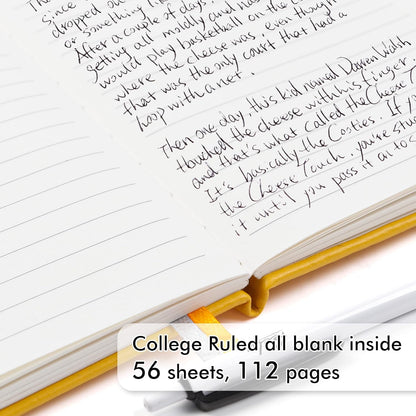 Since
dropped ou
or something l
After a couple of days,
getting all moldy and na
would play basketball on the c
where the cheese was, even though
that was the only court that had a
hoop with a net.
Then one day, this kid named Darren Walsh
touched the cheese with his finger,
and that's what called the Cheese
It's basically the Cooties. If
the Cheese Touch, you're stu
it until you pass it on to
College Ruled all blank inside
56 sheets, 112 pages